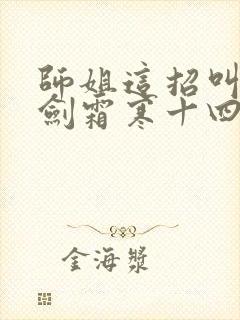 師姐這招叫
劍霜寒十四
金海漿